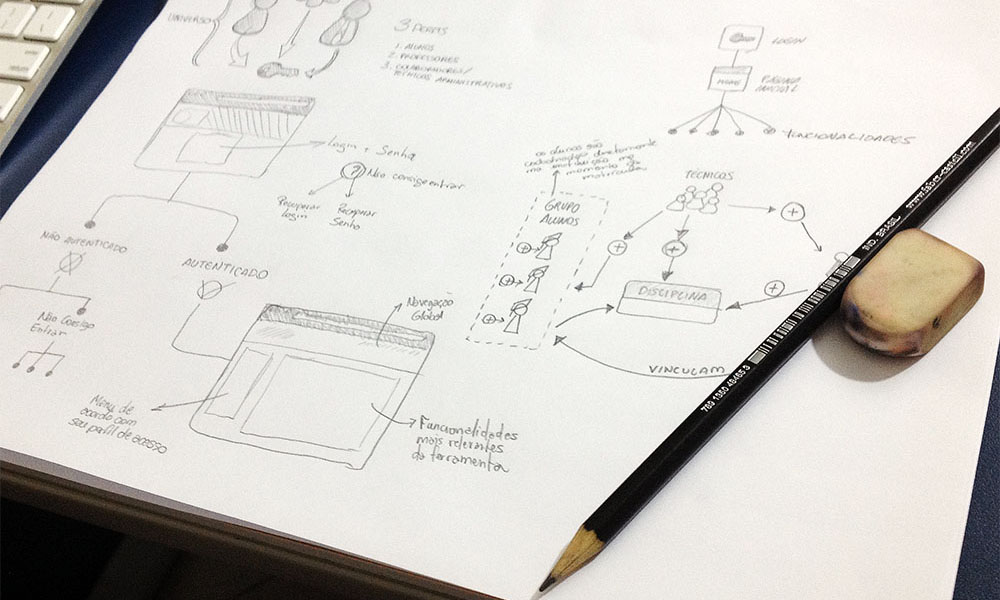 UNIVERSO
3 PERFIS
1. ALUNOS
2. PROFESSORES
3. COLABORADORES/
TÉCNICOS ADMINISTRATIVOS
Login + Senha
?
Não consigo entrar
Recuperar
Login
Recuperar
Senha
NÃO AUTENTICADO
AUTENTICADO
Não Consigo
Entrar
Navegação
Global
Menu de
acordo com
seu perfil de acesso
Funcionalidades
mais relevantes
da ferramenta
LOGIN
HOME
PÁGINA
INICIAL
FUNCIONALIDADES
os alunos são
cadastrados diretamente
na instituição no
momento da
matrícula
GRUPO
ALUNOS
TÉCNICOS
DISCIPLINA
VINCULAM
789 1360 46465 3
IND. BRASIL www.faber-castell.com